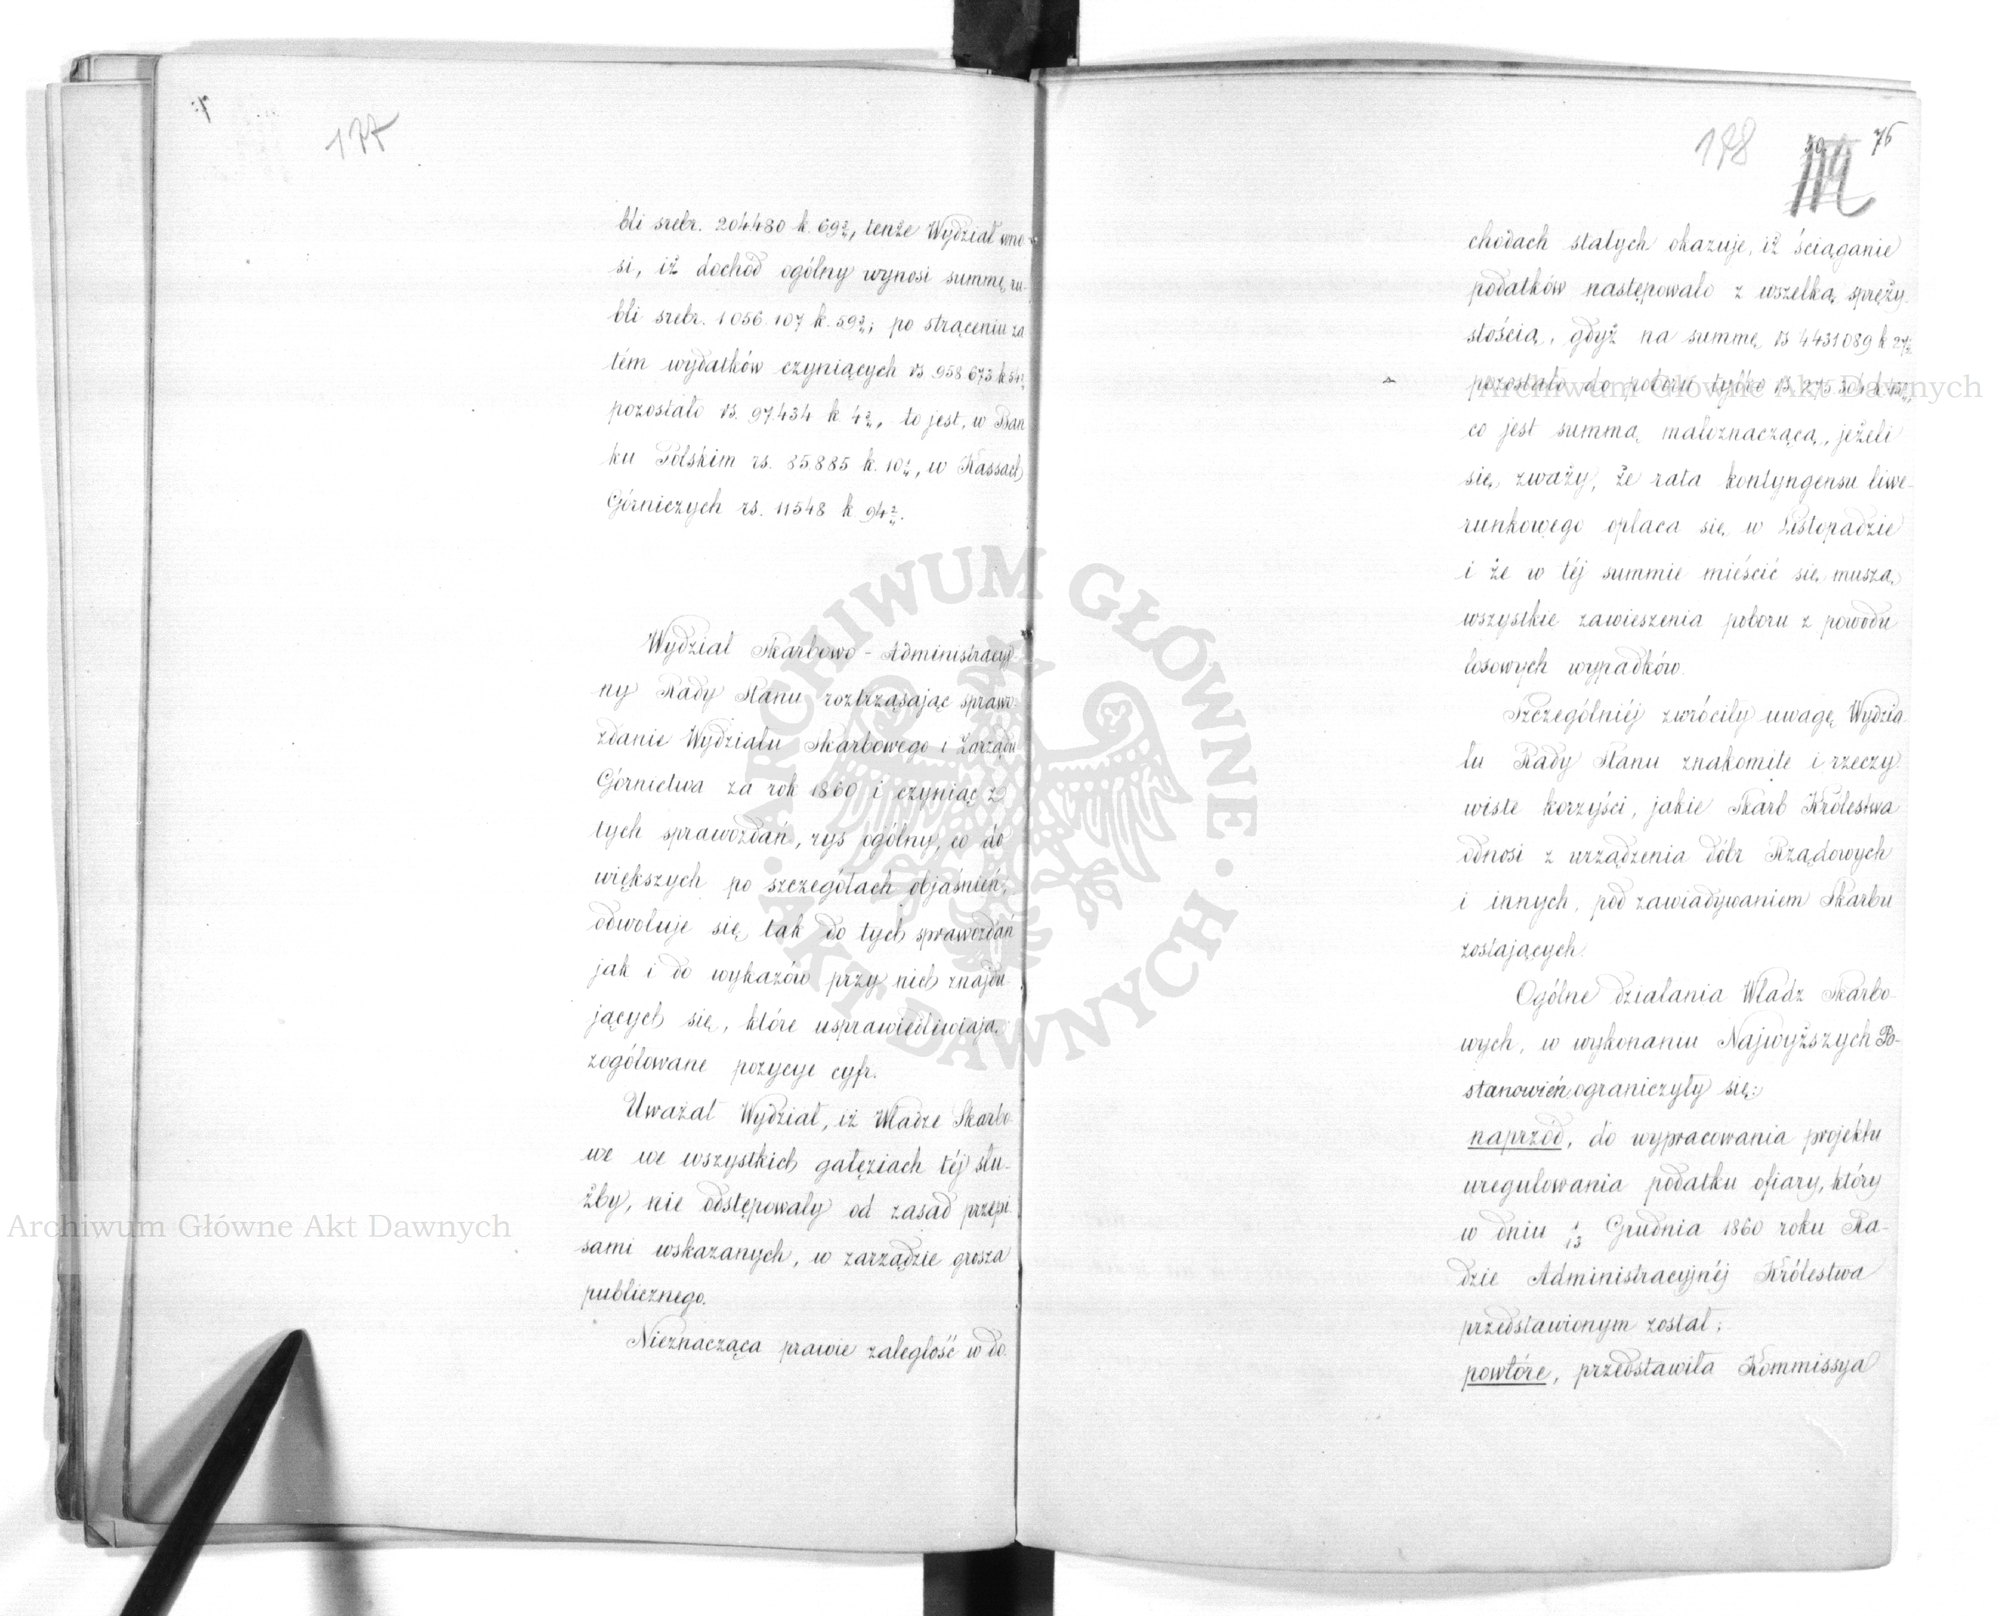 177
bli srebr. 204480 k. 69½, tenże Wydział wno-
si, iż dochod ogólny wynosi summę ru-
bli srebr. 1056.107 k. 59½; po strąceniu za
tém wydatków czyniących rs 958.673 k 54½
pozostało rs. 97434 k 4½, to jest, w Ban
ku Polskim rs. 85.885 k. 10½, w Kassach
Górniczych rs. 11548 k 94½.
Wydział Skarbowo - Administracyj-
ny Rady Stanu roztrząsając sprawo-
zdanie Wydziału Skarbowego i Zarządu
Górnictwa za rok 1860 i czyniąc z
tych sprawozdań, rys ogólny, co do
większych po szczegółach objaśnień,
odwołuje się, tak do tych sprawozdań
jak i do wykazów przy nich znajdu-
jących się, które usprawiedliwiają,
zogólowane pozycye cyfr.
Uważał Wydział, iż Władze Skarbo-
we we wszystkich gałęziach téj słu-
żby, nie odstępowały od zasad przepi-
sami wskazanych, w zarządzie grosza
publicznego.
Nieznacząca prawie zaległość w do-
178
76
chodach stałych okazuje, iż ściąganie
podatków następowało z wszelką spręży-
stością, gdyż na summę rs 4431089 k 27½
pozostało do poboru tylko rs 275
co jest summą małoznaczącą, jeżeli
się zważy, że rata kontyngensu liwe-
runkowego opłaca się w Listopadzie
i że w téj summie mieścić się muszą,
wszystkie zawieszenia poboru z powodu
losowych wypadków.
Szczególniéj zwróciły uwagę Wydzia-
łu Rady Stanu znakomite i rzeczy-
wiste korzyści, jakie Skarb Królestwa
odnosi z urządzenia dóbr Rządowych
i innych, pod zawiadywaniem Skarbu
zostających.
Ogólne działania Władz Skarbo-
wych, w wykonaniu Najwyższych Po-
stanowień ograniczyły się:
naprzód, do wypracowania projektu
uregulowania podatku ofiary, który
w dniu 1/13 Grudnia 1860 roku Ra-
dzie Administracyjnéj Królestwa
przedstawionym został;
powtóre, przedstawiła Kommissya
ARCHIWUM GŁÓWNE AKT DAWNYCH
Archiwum Główne Akt Dawnych
Archiwum Główne Akt Dawnych